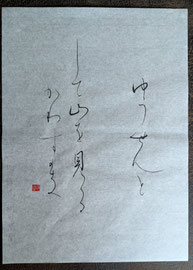 ゆうせんと
して山を見る
かわず哉